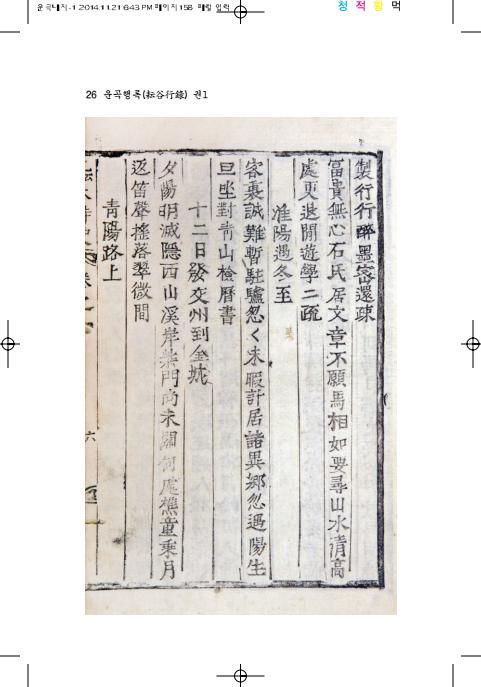 운곡내지-1 2014.11.21 6:43 PM 페이지158 매림 입력
청 적 황 먹
26 운곡행록(耘谷行錄) 권1
製行行醉墨密還疎
富貴無心石氏居文章不願馬相如要尋山水淸高
處更退閒遊學二疏
淮陽遇冬至
客裏誠難暫駐驢忽〱未暇計居諸異鄕忽遇陽生
旦坐對靑山檢曆書
十二日發交州到金城
夕陽明滅隱西山溪岸柴門尙未關何處樵童乘月
返笛聲搖落翠微間
靑陽路上
六